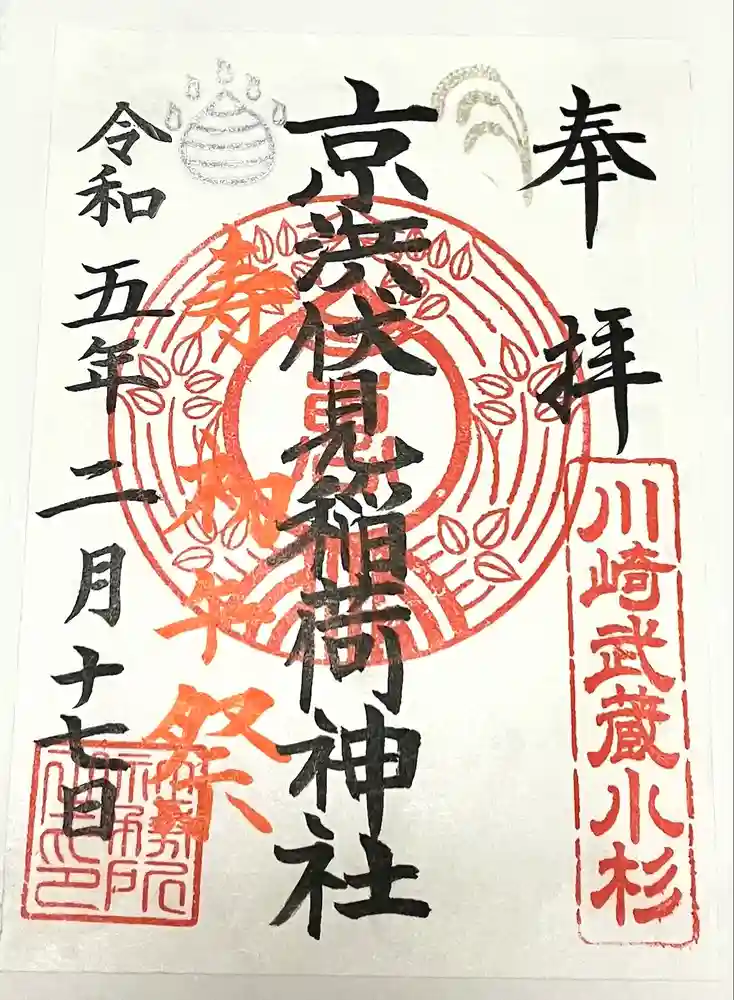 奉拝
川崎武蔵小杉
京浜伏見稲荷神社
寿初午祭
令和五年二月十七日